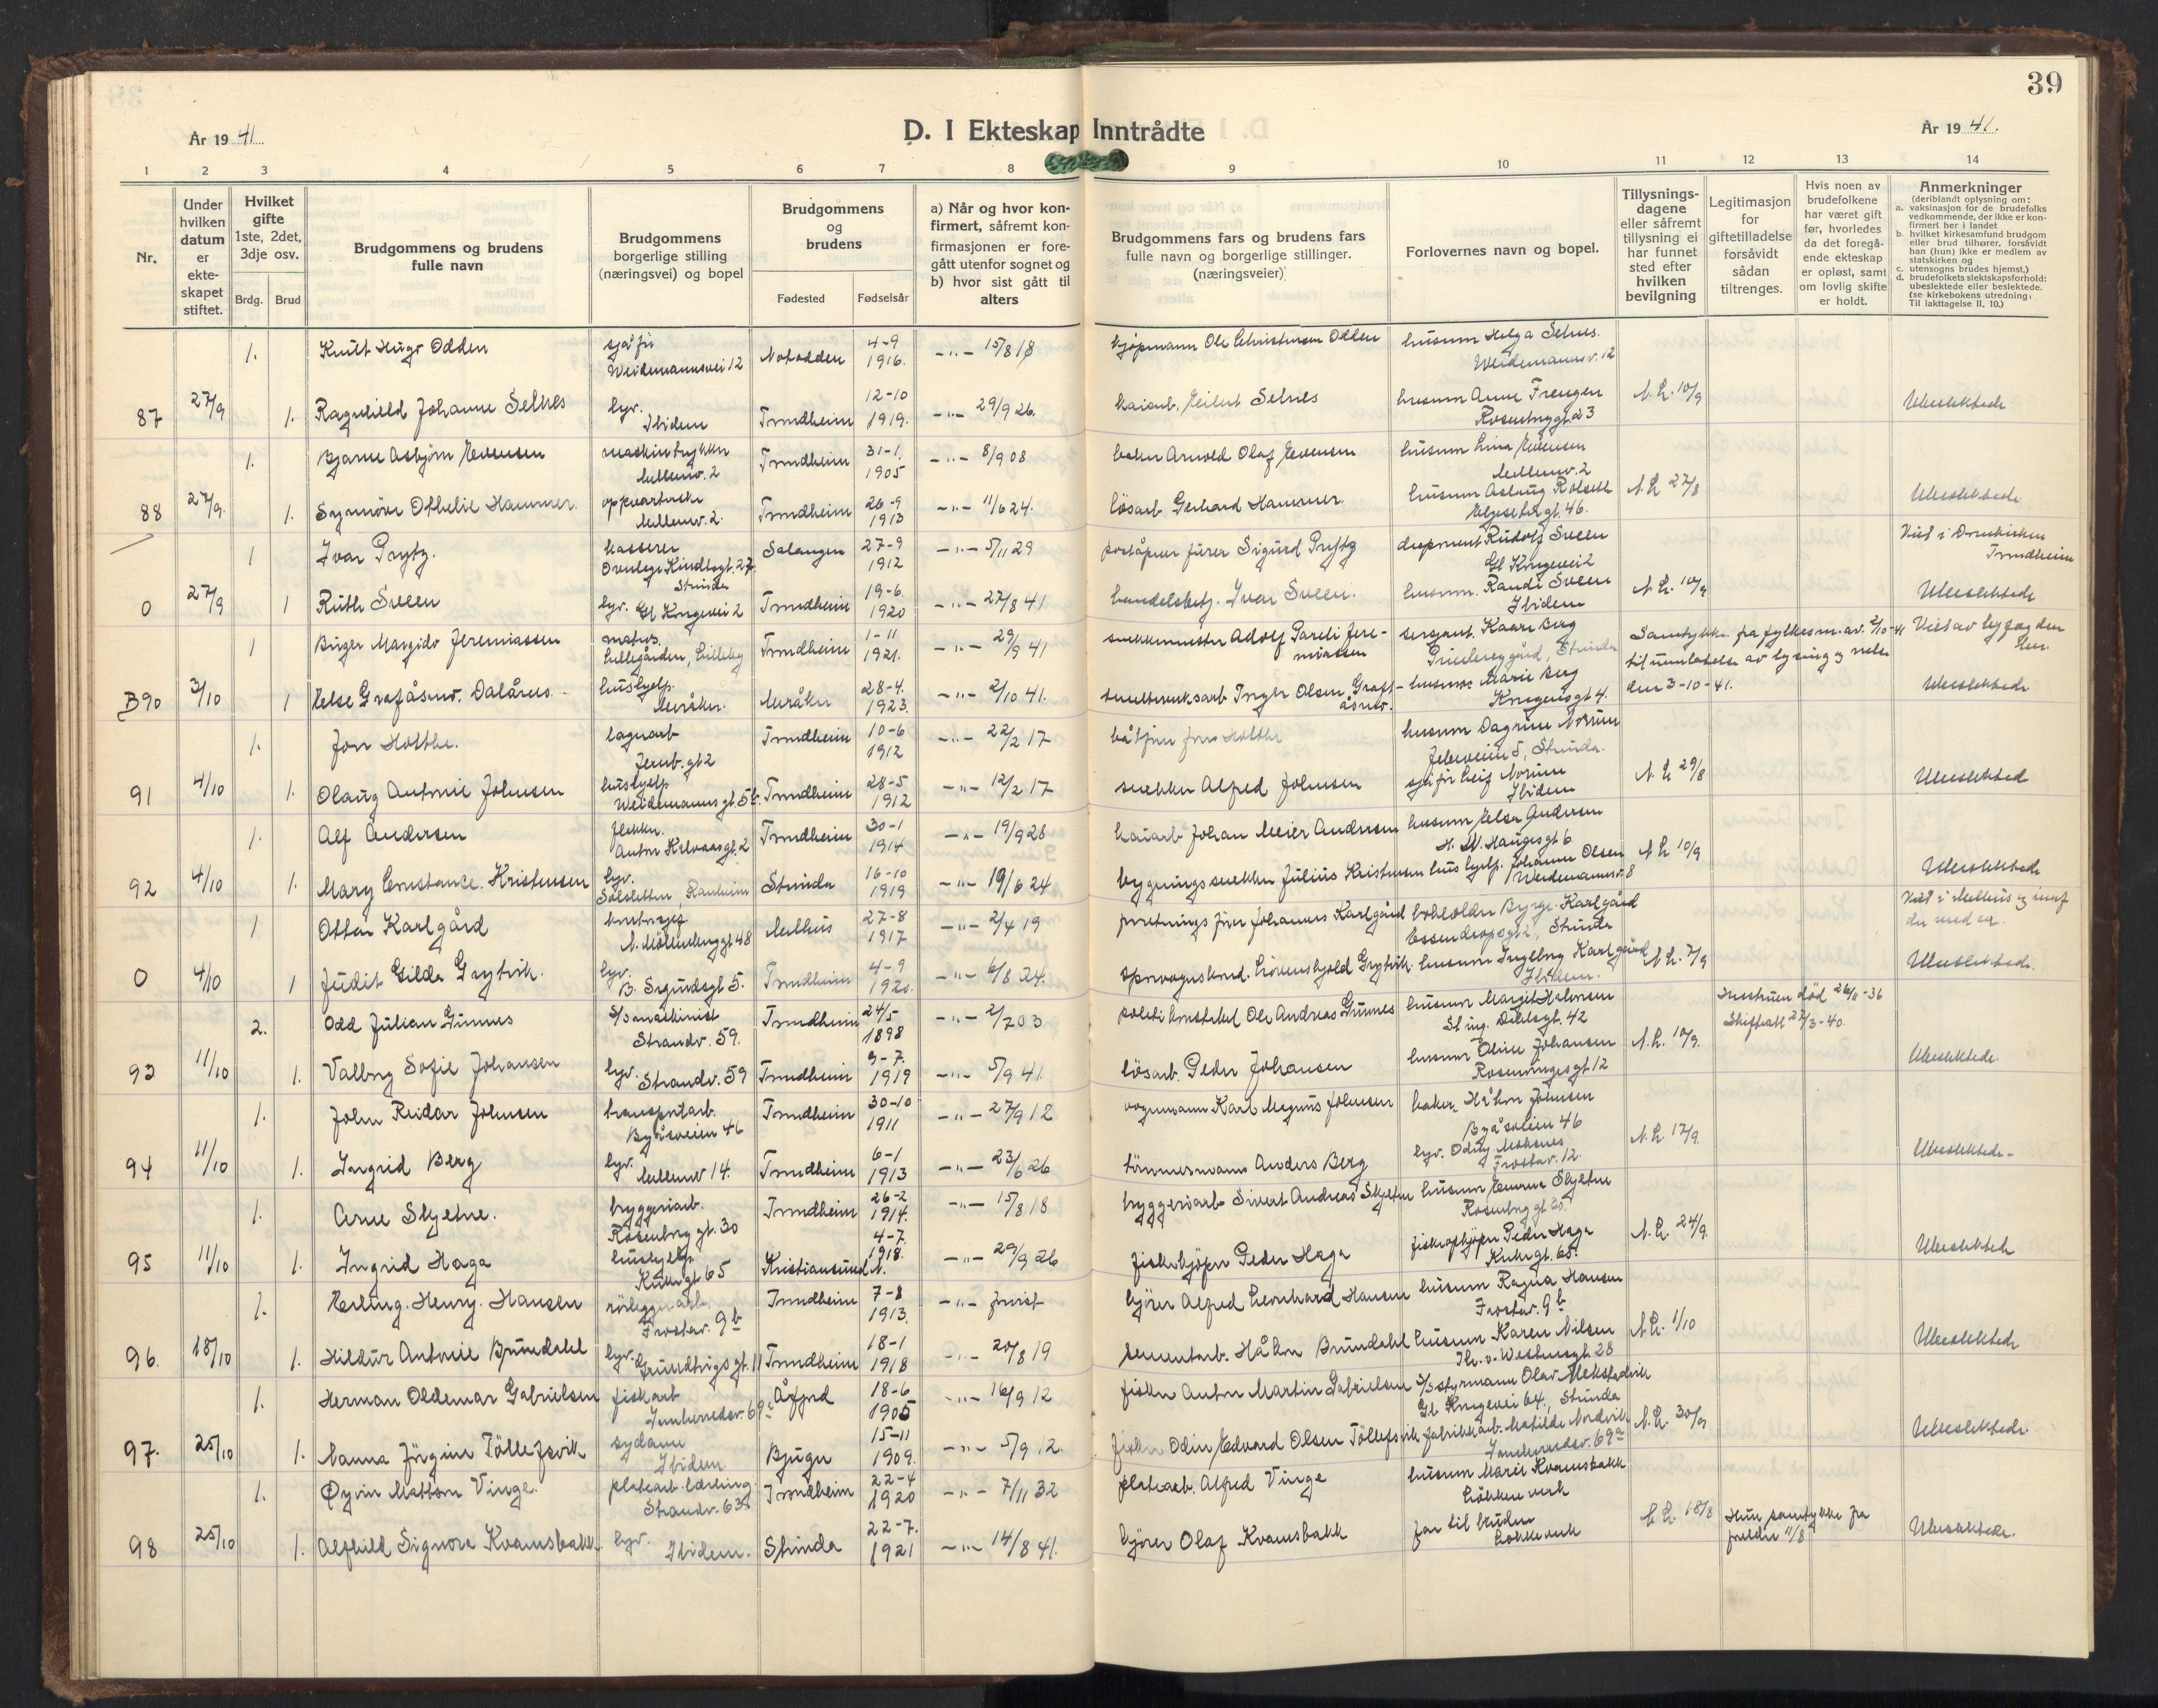 39
År 1941.
D. I Ekteskap Inntrådte
År 1941.
1 2 3 4 5 6 7 8 9 10 11 12 13 14
Nr.
Under hvilken datum er ekte-skapet stiftet.
Hvilket gifte 1ste, 2det, 3dje osv.
Brdg. Brud
Brudgommens og brudens fulle navn
Brudgommens borgerlige stilling (næringsvei) og bopel
Brudgommens og brudens
Fødested Fødselsår
a) Når og hvor kon-firmert, såfremt kon-firmasjonen er fore-gått utenfor sognet og b) hvor sist gått til alters
Brudgommens fars og brudens fars fulle navn og borgerlige stillinger. (næringsveier)
Forlovernes navn og bopel.
Tillysnings-dagene eller såfremt tillysning ei har funnet sted efter hvilken bevilgning
Legitimasjon for giftetilladelse forsåvidt sådan tiltrenges.
Hvis noen av brudefolkene har været gift før, hvorledes da det foregå-ende ekteskap er opløst, samt om lovlig skifte er holdt.
Anmerkninger
(deriblandt oplysning om:
a. vaksinasjon for de brudefolks vedkommende, der ikke er kon-firmert her i landet
b. hvilket kirkesamfund brudgom eller brud tilhører, forsåvidt han (hun) ikke er medlem av statskirken og
c. utensogns brudes hjemst.)
d. brudefolkets slektskapsforhold: ubeslektede eller beslektede. (se kirkebokens utredning: Til iakttagelse II, 10.)
1. Knut Hugo Odden sjåfør Weidemannsvei 12 Notodden 4-9 1916. -"- 15/8 18 kjøpmann Ole Christensen Odden husm Helga Selnes. Weidemannsv. 12
87 27/9 1. Ragnhild Johanne Selnes hjv. Ibidem Trondheim 12-10 1919. -"- 29/9 26. kaiarb. Eilert Selnes husm Anne Frengen Rosenborg gt 23 N.L. 10/9 Ubeslektede
1. Bjarne Asbjørn Evensen maskintrykker Mellemv. 2 Trondheim 31-1. 1905 -"- 8/9 08 baker Arnold Olaf Evensen husm Lina Evensen Mellemv. 2
88 27/9. 1. Synnöve Othelie Hammer. Mellemv. 2. Trondheim 26-9 1913 -"- 11/6 24. lösarb Gerhard Hammer. husm Aslaug Rolseth Elgesetergt. 46. N.L. 27/8 Ubeslektede
1 Ivar Prytz. kasserer Overlege Kindtsgt. 27 Strinda Salangen 27-9 1912 -"- 5/11 29 poståpner fører Sigurd Prytz disponent Rudolf Sveen Gl Kongevei 2 Viet i Domkirken Trondheim
0 27/9 1 Ruth Sveen hjv. Gl Kongevei 2 Trondheim 19-6. 1920 -"- 27/8 41 handelsbetj. Ivar Sveen. husm. Randi Sveen Ibidem N.L. 10/9 Ubeslektede
1 Birger Margido Jeremiassen matros. Lillegården, Lilleby Trondheim 1-11 1921. -"- 29/9 41 snekkermester Adolf Pareli Jere-miassen sersjant. Kaare Berg Strinda Samtykke fra fylkesm. av. 2/10-41 til unnlatelse av lysing og vielse den 3-10-41. Viet av byfogden her.
B90 3/10 1 Else Grafåsmo. Dalåmo. hushjelp. Meråker. Meråker 28-4. 1923. -"- 2/10 41. smelteverksarb Inger Olsen Graf-åsmo. husmor Marie Berg Kongensgt 4. Ubeslektede
1. Jon Holthe. lagerarb Jernb. gt 2 Trondheim 10-6 1912 -"- 22/2 17 båtfører Jens Holthe husm Dagrun Norum Strinda.
91 4/10 1. Olaug Antonie Johnsen hushjelp Weidemannsgt 5b. Trondheim 28-5 1912 -"- 12/2 17 snekker Alfred Johnsen sjåfør Leif Norum Ibidem N.L 29/8 Ubeslektede
1. Alf Andersen Trondheim 30-1 1914 -"- 19/9 28 kaiarb Johan Meier Andersen husm Elsa Andersen H. N. Haugesgt 6
92 4/10 1. Mary Constance. Kristensen hjv. Solsletten, Ranheim Strinda 16-10 1919 -"- 19/6 24 bygningssnekker Julius Kristensen hushjelp. Johanne Olsen Weidemannsv. 8 N.L 10/9 Ubeslektede
1 Ottar Karlgård kontorsjef N. Möllenberggt 48 Melhus 27-8 1917 -"- 2/4 19 forretningsfører Johannes Karlgård bokholder Byrge Karlgård Strinda Viet i Melhus og innf der med nr.
0 4/10 1 Judit Gilda Grytvik. hjv. B. Sigurdsgt 5. Trondheim 4-9 1920. -"- 6/8 24. sporvognskond. Lövenskjold Grytvik. husm Ingeborg Karlgård Ibidem. N.L. 7/9 Ubeslektede.
2. Odd Julian Gunnes S/S maskinist Strandv. 59. Trondheim 24/5 1898 -"- 2/7 03 politikonstabel Ole Andreas Gunnes husm Margit Halvorsen St ing. Dahlsgt. 42 Hustruen død 26/11-36 Skifteatt 27/3-40.
93 11/10 1. Valborg Sofie Johansen hjv. Strandv. 59 Trondheim 9-7. 1919 -"- 5/9 41. lösarb. Peder Johansen husm Oline Johansen Rosenborgsgt 12 N.L. 10/9. Ubeslektede
1. John Reidar Johnsen transportarb. Byåsveien 46 Trondheim 30-10 1911 -"- 27/9 12 vognmann Karl Magnus Johnsen baker Håkon Johnsen Byåsveien 46
94 11/10 1. Ingrid Berg hjv. Mellemv 14. Trondheim 6-1 1913 -"- 23/6 26 tömmermann Anders Berg hjv. Frostav. 12. N.L. 17/9. Ubeslektede.
1. Arne Skjetne. bryggeriarb. Rosenborg gt. 30 Trondheim 26-2 1914. -"- 15/8 18 bryggeriarb Sivert Andreas Skjetne husm Emma Skjetne Rosenborg gt 30.
95 11/10 1. Ingrid Haga hushjelp Kirkegt 65 Kristiansund N. 4-7. 1918. -"- 29/9 26 fiskekjøper Peder Haga fiskeoppkjøper Peder Haga Kirkegt. 65. N.L. 24/9. Ubeslektede
1. Erling. Henry. Hansen rörleggerarb Frostav. 9b Trondheim 7-8 1913. -"- kjörer Alfred Leonhard Hansen husm Ragna Hansen Frostav. 9b
96. 18/10 1. Hildur Antonie Brundahl hjv. Grundtvigsgt. 11 Trondheim 18-1 1918 -"- 20/8 19 sementarb. Håkon Brundahl husm Karen Nilsen Th. v. Westensgt 28 N.L. 1/10 Ubeslektede
1. Herman Oldemar Gabrielsen fiskarb Innherredsv. 69a Åfjord 18-6 1905 -"- 16/9 12 fisker Anton Martin Gabrielsen S/S styrmann Olav Gl. Kongevei 64, Strinda
97. 25/10 1. Nanna Jörgine Töllefsvik sydame Ibidem. Bjugn 15-11 1909. -"- 5/9 12. fisker Odin Edvard Olsen Töllefsvik fabrikkarb. Matilde Nordvik Innherredsv. 69a N.L. 30/9 Ubeslektede.
1. Øyvin Mattson Vinge. platearb. lærling Strandv. 63a Trondheim 22-4 1920 -"- 7/11 32 platearb. Alfred Vinge husm Marie Kvamsbakk Lökkenverk
98 25/10 1. Alfhild Signora Kvamsbakk hjv. Ibidem. Strinda 22-7. 1921 -"- 14/8 41. kjörer Olaf Kvamsbakk far til bruden Lökkenverk N.L. 18/8 Hun samtykke fra foreldre 11/8 Ubeslektede.